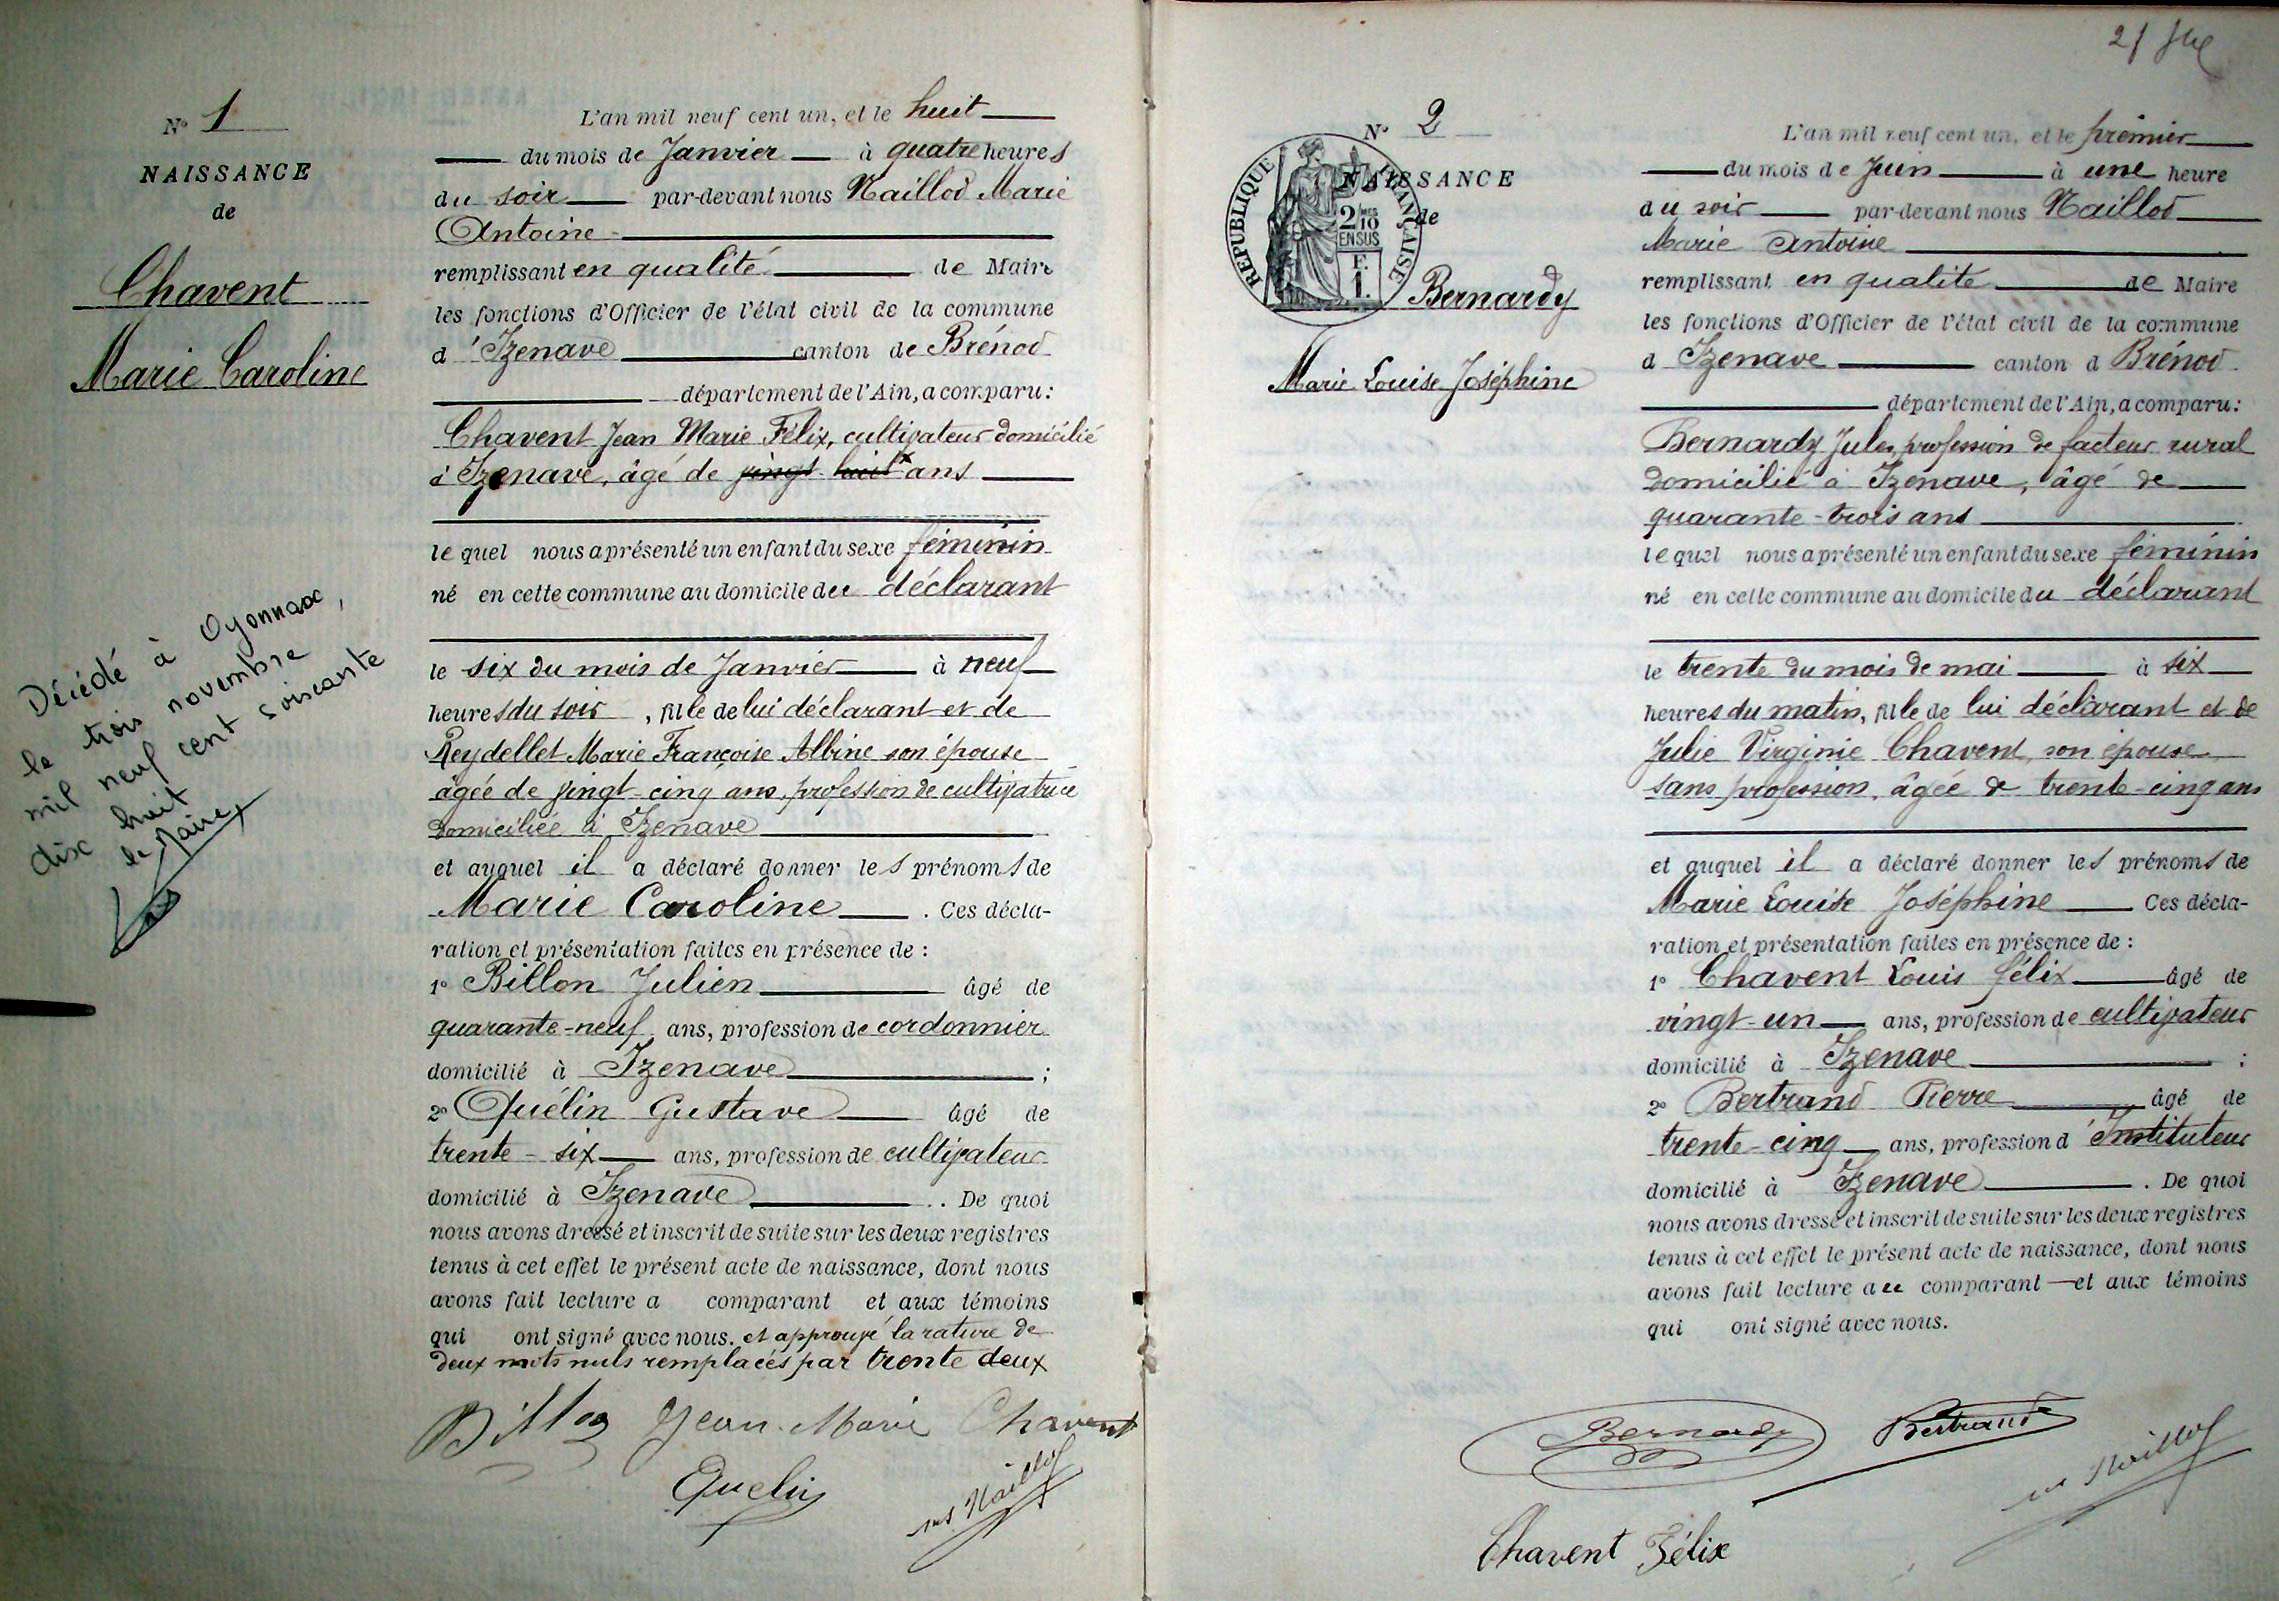 N° 1
NAISSANCE
de
Chavent
Marie Caroline
Décédé à Oyonnax,
le trois novembre
mil neuf cent soixante
dix huit
le Maire
L'an mil neuf cent un, et le huit
du mois de Janvier à quatre heures
du soir par-devant nous Naillod Marie
Antoine
remplissant en qualité de Maire
les fonctions d'Officier de l'état civil de la commune
d'Izenave canton de Brénod
département de l'Ain, a comparu :
Chavent Jean Marie Félix, cultivateur domicilié
à Izenave, âgé de vingt huit × ans
le quel nous a présenté un enfant du sexe féminin
né en cette commune au domicile du déclarant
le six du mois de Janvier à neuf
heures du soir, fille de lui déclarant et de
Reydellet Marie Françoise Albine son épouse
âgée de vingt-cinq ans, profession de cultivatrice
domiciliée à Izenave
et auquel il a déclaré donner les prénoms de
Marie Caroline. Ces décla-
ration et présentation faites en présence de :
1° Billon Julien âgé de
quarante-neuf ans, profession de cordonnier
domicilié à Izenave ;
2° Quélin Gustave âgé de
trente-six ans, profession de cultivateur
domicilié à Izenave. De quoi
nous avons dressé et inscrit de suite sur les deux registres
tenus à cet effet le présent acte de naissance, dont nous
avons fait lecture a comparant et aux témoins
qui ont signé avec nous. et approuvé la rature de
deux mots nuls remplacés par trente deux
Billon Jean Marie Chavent
Quelin Naillod
21
N° 2
NAISSANCE
de
REPUBLIQUE FRANÇAISE
2/10 MES
EN SUS
F.
1.
Bernardy
Marie Louise Joséphine
L'an mil neuf cent un, et le premier
du mois de Juin à une heure
du soir par-devant nous Naillod
Marie Antoine
remplissant en qualité de Maire
les fonctions d'Officier de l'état civil de la commune
d Izenave canton d Brénod
département de l'Ain, a comparu :
Bernardy Jules, profession de facteur rural
domicilié à Izenave, âgé de
quarante-trois ans
le quel nous a présenté un enfant du sexe féminin
né en cette commune au domicile du déclarant
le trente du mois de mai à six
heures du matin, fille de lui déclarant et de
Julie Virginie Chavent, son épouse
sans profession, âgée de trente-cinq ans
et auquel il a déclaré donner les prénoms de
Marie Louise Joséphine Ces décla-
ration et présentation faites en présence de :
1° Chavent Louis Félix âgé de
vingt-un ans, profession de cultivateur
domicilié à Izenave ;
2° Bertrand Pierre âgé de
trente-cinq ans, profession d'Instituteur
domicilié à Izenave. De quoi
nous avons dressé et inscrit de suite sur les deux registres
tenus à cet effet le présent acte de naissance, dont nous
avons fait lecture au comparant et aux témoins
qui ont signé avec nous.
Bernardy Bertrand Naillod
Chavent Félix